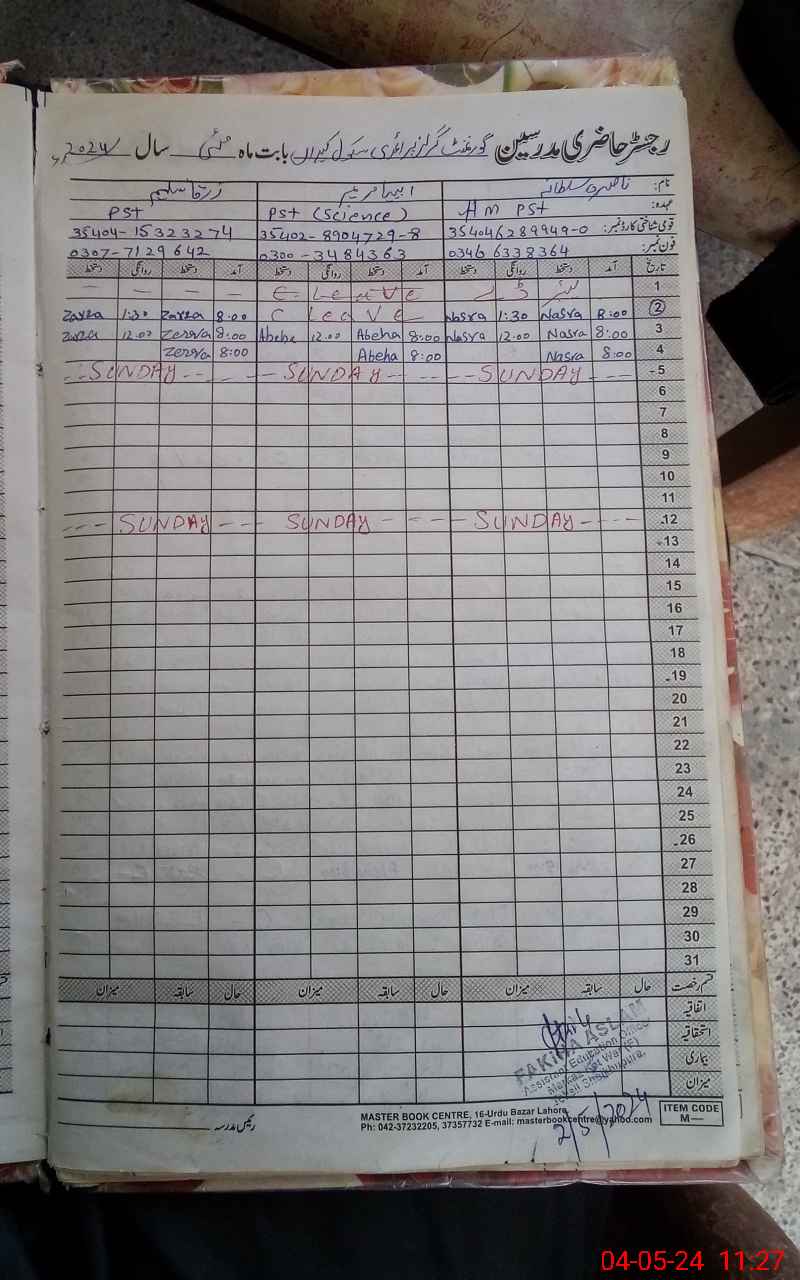 رجسٹر حاضری مدرسین گورنمنٹ گرلز پرائمری سکول بابت ماہ مئی سال 2024ء
نام: ناصرہ سلطانہ ابیہا مریم زرقا سلیم
عہدہ: HM PST PST (Science) PST
قومی شناختی کارڈ نمبر: 354046289949-0 35402-8904729-8 35404-15323274
فون نمبر: 0346 6338364 0300-3484363 0307-7129642
تاریخ آمد دستخط روانگی دستخط آمد دستخط روانگی دستخط آمد دستخط روانگی دستخط
1 لیبر ڈے C. Leave
2 8:00 Nasra 1:30 Nasra C Leave 8:00 Zarra 1:30 Zarra
3 8:00 Nasra 12:00 Nasra 8:00 Abeha 12:00 Abeha 8:00 Zerrva 12:00 Zarra
4 8:00 Nasra 8:00 Abeha 8:00 Zerrva
5 SUNDAY SUNDAY SUNDAY
6
7
8
9
10
11
12 SUNDAY SUNDAY SUNDAY
13
14
15
16
17
18
19
20
21
22
23
24
25
26
27
28
29
30
31
قسم رخصت حال سابقہ میزان حال سابقہ میزان حال سابقہ میزان
اتفاقیہ
استحقاقیہ
بیماری
میزان
FAKIHA ASLAM
Assistant Education Officer
2/5/2024
رئیس مدرسہ
MASTER BOOK CENTRE, 16-Urdu Bazar Lahore.
Ph: 042-37232205, 37357732 E-mail: masterbookcentre@yahoo.com
ITEM CODE
M—
04-05-24 11:27